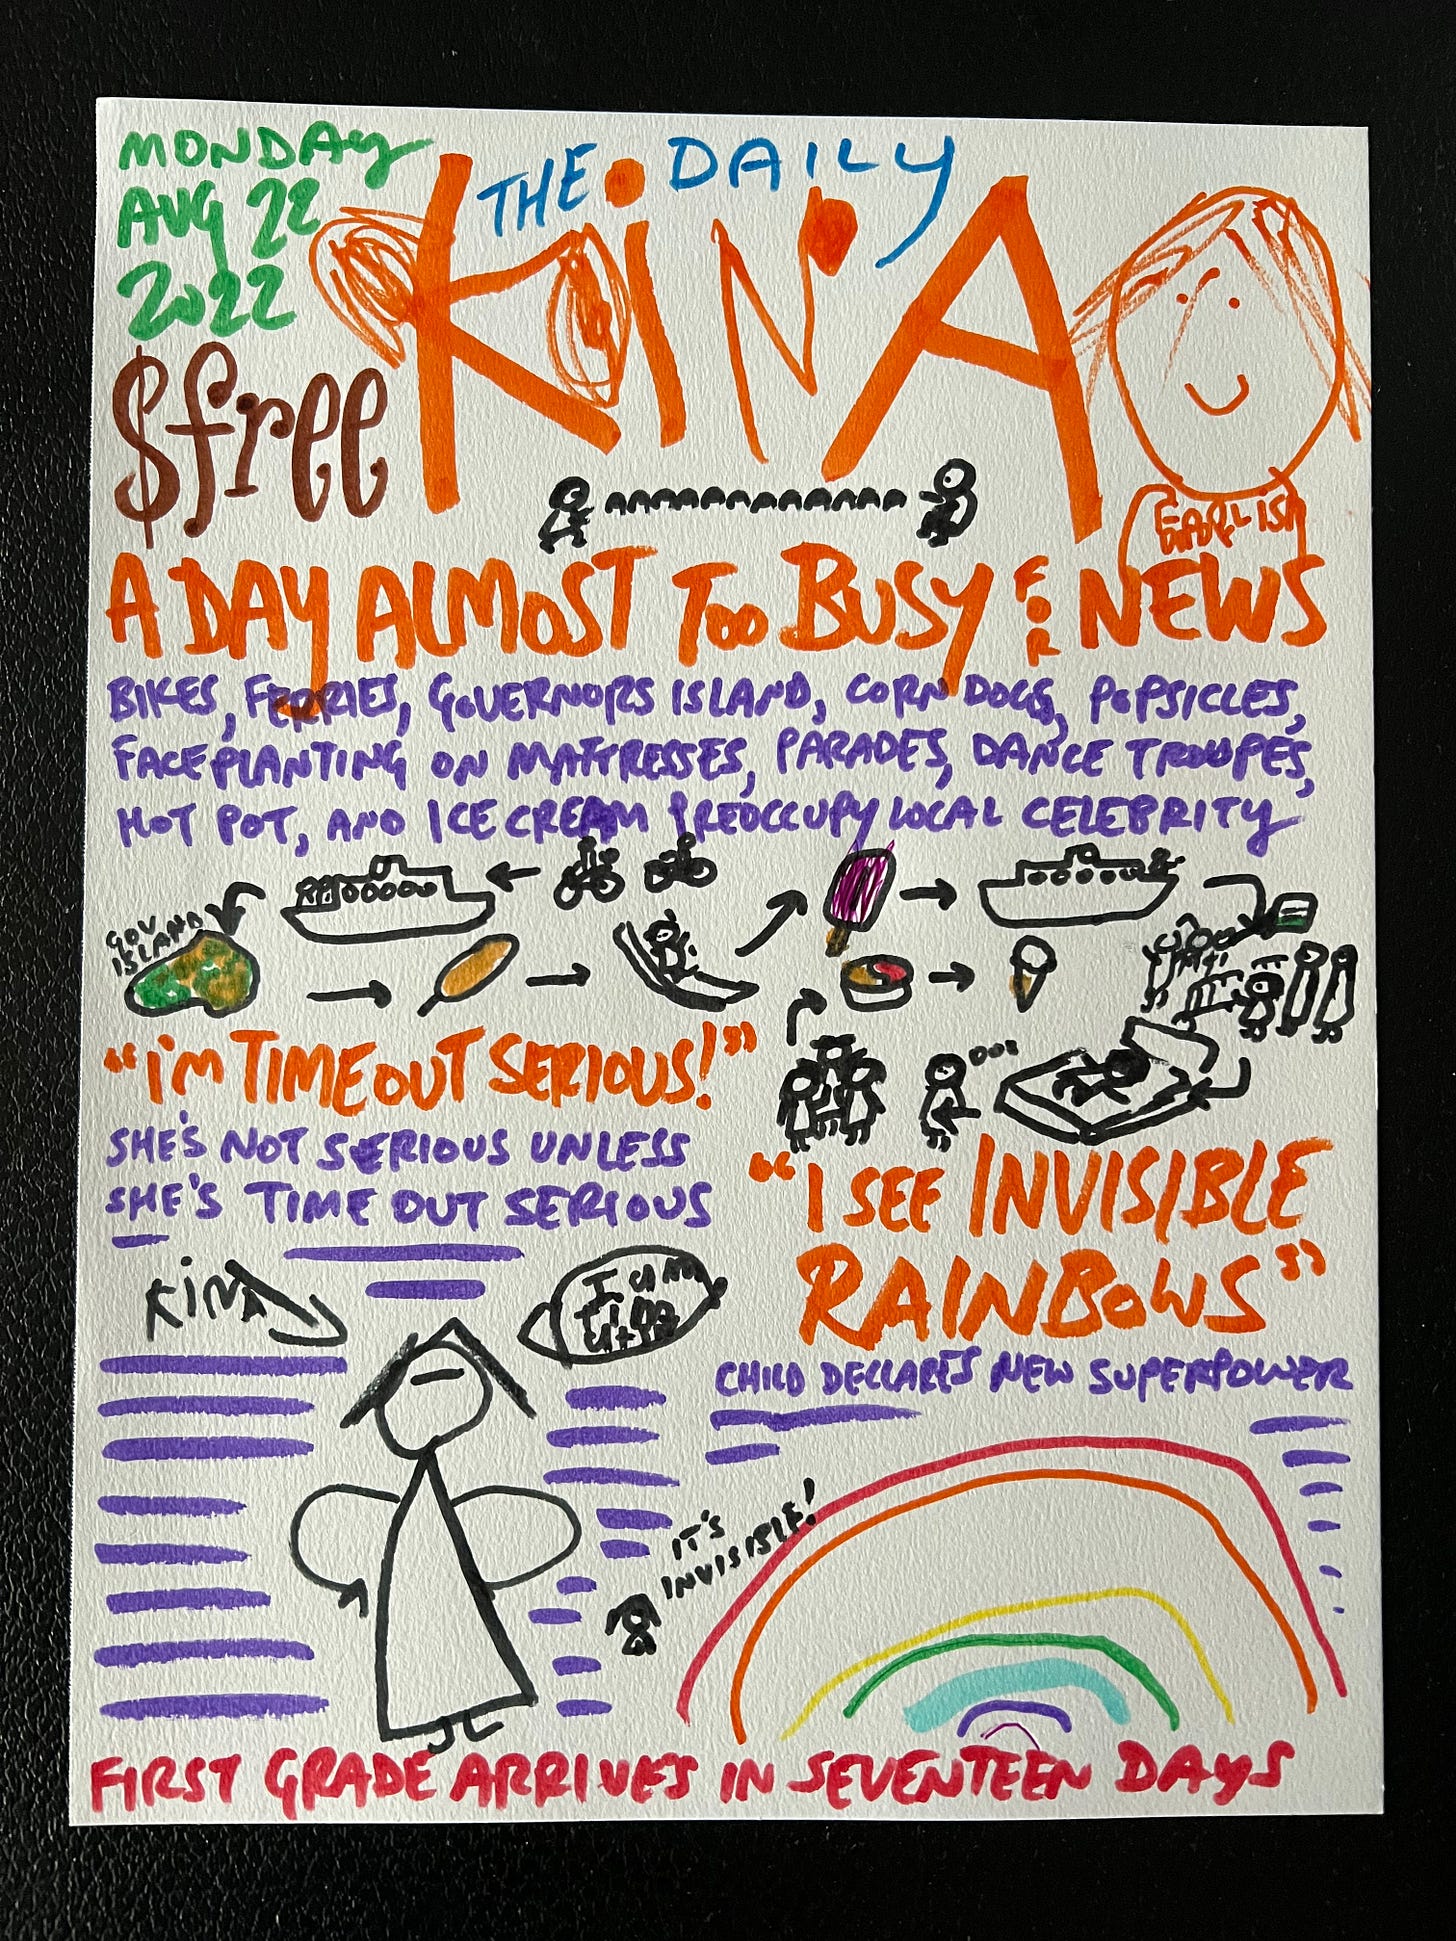 MONDAY
AUG 22
2022
$free
THE DAILY
KiNA
ENGLISH
A DAY ALMOST TOO BUSY FOR NEWS
BIKES, FERRIES, GOVERNORS ISLAND, CORN DOGS, POPSICLES,
FACEPLANTING ON MATTRESSES, PARADES, DANCE TROUPES,
HOT POT, AND ICE CREAM PREOCCUPY LOCAL CELEBRITY
GOV
ISLAND
"I'M TIMEOUT SERIOUS!"
SHE'S NOT SERIOUS UNLESS
SHE'S TIME OUT SERIOUS
KiNA
I am
"I SEE INVISIBLE
RAINBOWS"
CHILD DECLARES NEW SUPERPOWER
IT'S
INVISIBLE!
FIRST GRADE ARRIVES IN SEVENTEEN DAYS